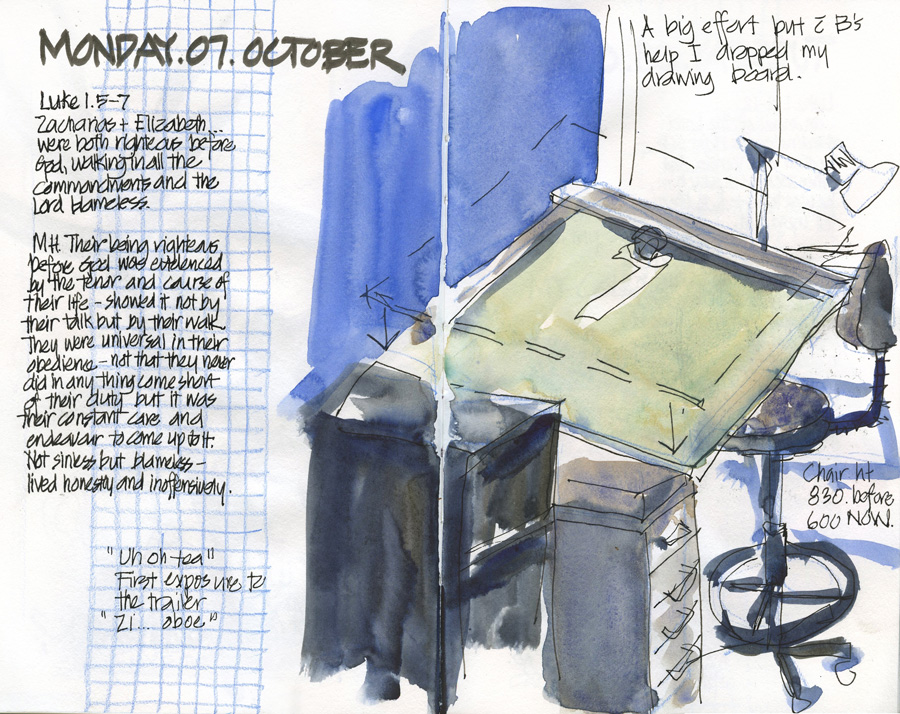 MONDAY.07.OCTOBER
Luke 1.5-7
Zacharias + Elizabeth...
were both righteous before
God, walking in all the
commandments and the
Lord blameless.
MH Their being righteous
before God was evidenced
by the tenor and course of
their life - showed it not by
their talk but by their walk.
They were universal in their
obedience - not that they never
did in any thing come short
of their duty but it was
their constant care and
endeavour to come up to it.
Not sinless but blameless -
lived honestly and inoffensively.
"Uh oh tea"
First exposure to
the trailer
"21... oboe"
A big effort but c̄ B's
help I dropped my
drawing board.
Chair ht
830. before
600 NOW.